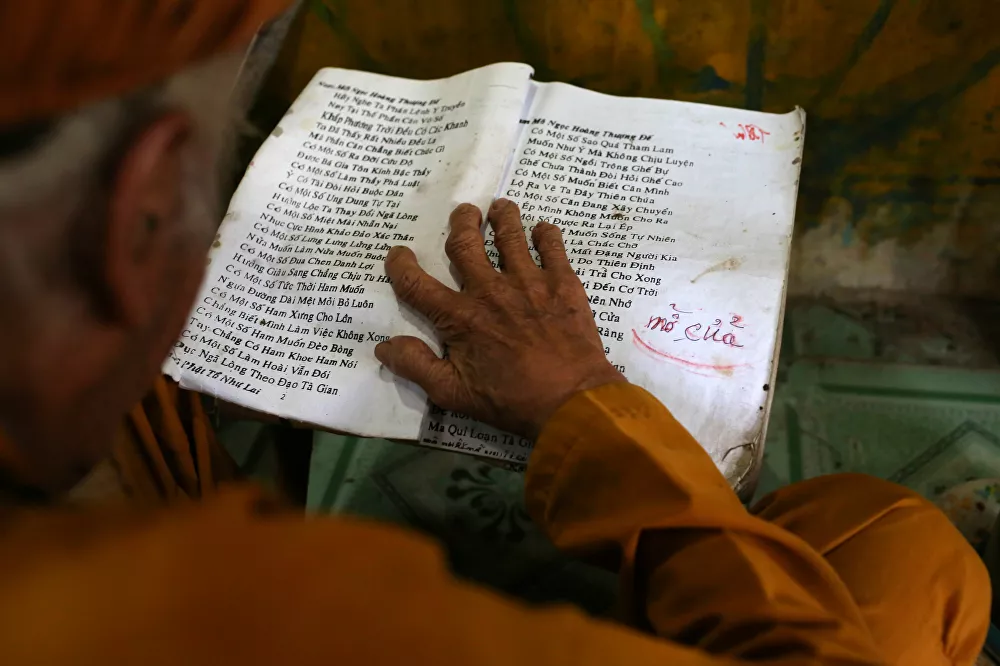 Nam Mô Ngọc Hoàng Thượng Đế
Hãy Nghe Ta Phân Lệnh Ý Truyền
Nay Tại Thế Phần Căn Vô Số
Khắp Phương Trời Đều Có Các Khanh
Ta Đã Thấy Rất Nhiều Đều Lạ
Mà Phần Căn Chẳng Biết Chúc Gì
Có Một Số Ra Đời Cứu Độ
Được Bá Gia Tôn Kính Bậc Thầy
Có Một Số Làm Thầy Phá Luật
Ỷ Có Tài Đòi Hỏi Buộc Dân
Có Một Số Ung Dung Tự Tại
Hưởng Lộc Ta Thay Đổi Ngã Lòng
Có Một Số Miệt Mài Nhẫn Nại
Nhục Cực Hình Khảo Đảo Xác Thân
Có Một Số Lưng Lưng Lửng Lửng
Nửa Muốn Làm Nửa Muốn Buôn
Có Một Số Đua Chen Danh Lợi
Hưởng Giàu Sang Chẳng Chịu Tu
Có Một Số Tức Thời Ham Muốn
Ngựa Đường Dài Mệt Mỏi Bỏ Luôn
Có Một Số Ham Xưng Cho Lớn
Chẳng Biết Mình Làm Việc Không Xong
Có Một Số Ham Muốn Đèo Bòng
Tay Chẳng Có Ham Khoe Ham Nói
Có Một Số Làm Hoài Vẫn Đói
Dục Ngã Lòng Theo Đạo Tà Gian
Phật Tổ Như Lai
2
Mô Ngọc Hoàng Thượng Đế
Có Một Số Sao Quá Tham Lam
Muốn Như Ý Mà Không Chịu Luyện
Có Một Số Ngồi Trông Ghế Bự
Ghế Chưa Thành Đòi Hỏi Ghế Cao
Có Một Số Muốn Biết Căn Mình
Lộ Ra Vẽ Ta Đây Thiên Chúa
Có Một Số Căn Đang Xây Chuyển
Ép Mình Không Muốn Cho Ra
Một Số Được Ra Lại Ép
Muốn Sống Tự Nhiên
Là Chắc Chờ
Mất Đáng Người Kia
Do Thiên Định
Trả Cho Xong
Đến Cơ Trời
Nên Nhớ
Cửa
Ràng
mở cửa
Ma Quỉ Loạn Tà